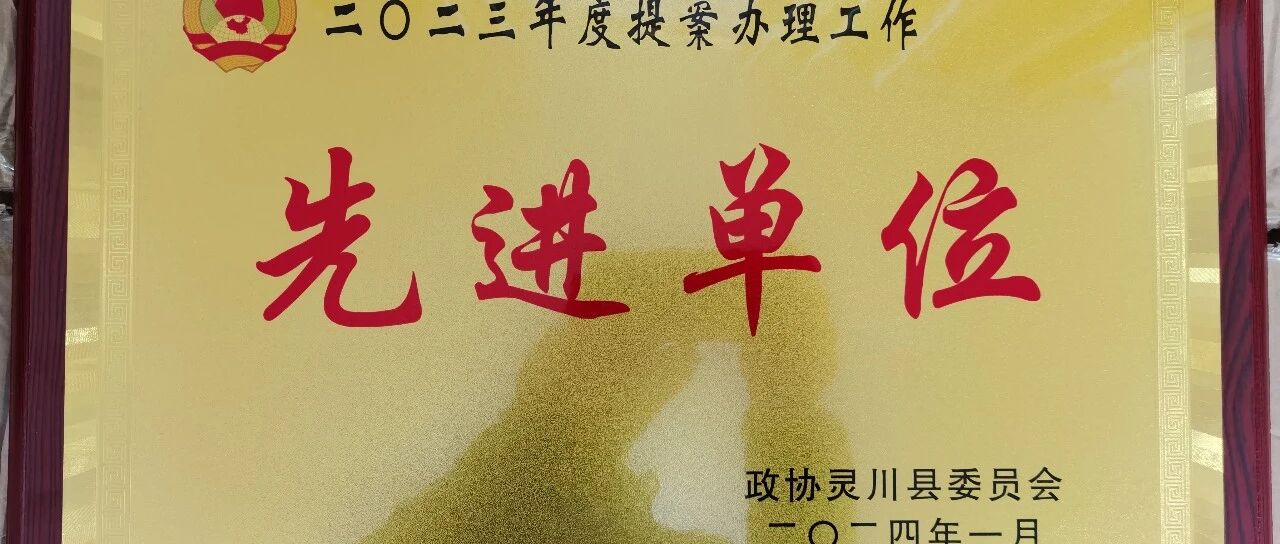 二〇二三年度提案办理工作
先进单位
政协灵川县委员会
二〇二四年一月